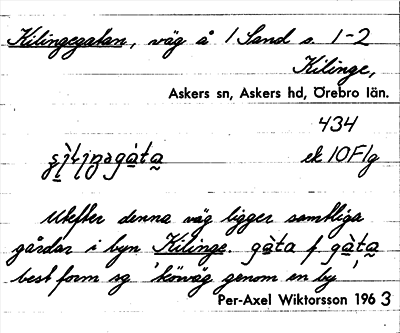 Kilingegatan, väg å 1 Sand s. 1-2
Kilinge,
Askers sn, Askers hd, Örebro län.
434
ek 10F1g
Utefter denna väg ligger samtliga
gårdar i byn Kilinge. gàta f. gàta
best form sg 'körväg genom en by'
Per-Axel Wiktorsson 1963